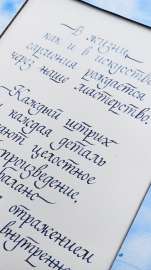 В жизни,
как и в искусстве
гармония рождается
через наше мастерство.
Каждый штрих
и каждая деталь
ают целостное
произведение,
баланс
отражением
внутренне